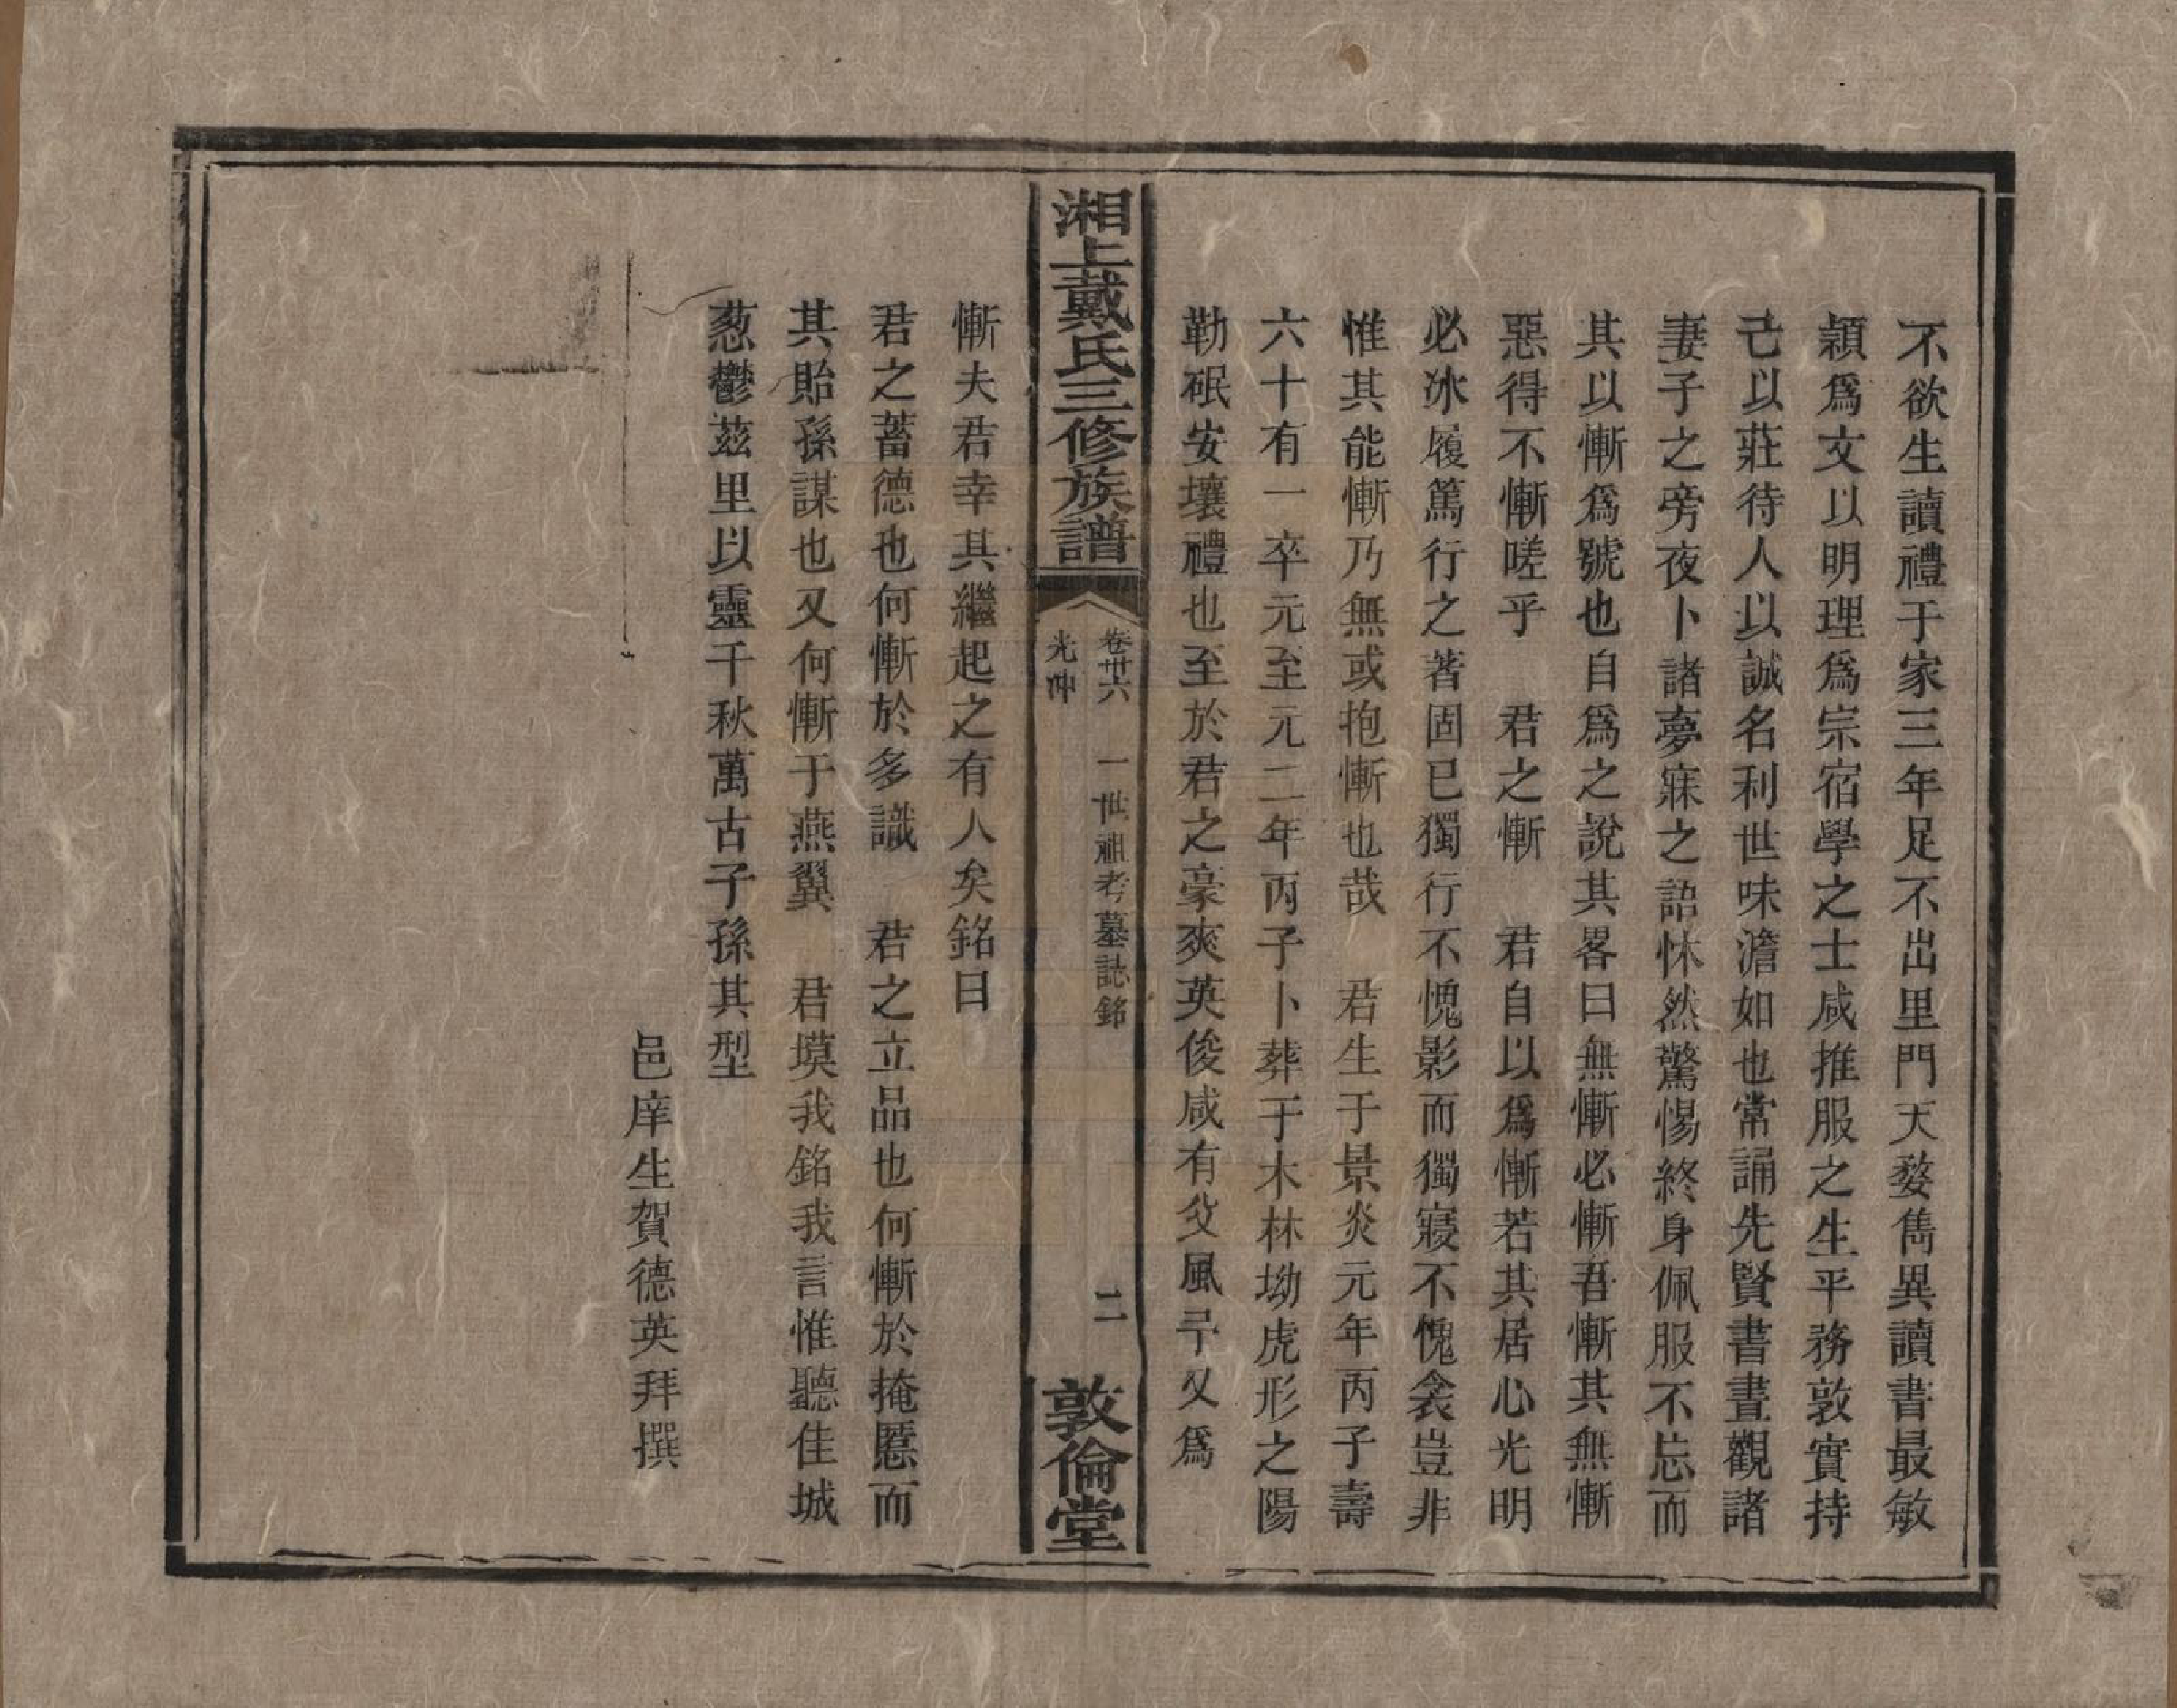 不欲生讀禮于家三年足不出里門天婺雋異讀書最敏
穎爲文以明理爲宗宿學之士咸推服之生平務敦實持
己以莊待人以誠名利世味澹如也常誦先賢書晝觀諸
妻子之旁夜卜諸夢寐之語怵然驚惕終身佩服不忘而
其以慚爲號也自爲之說其畧曰無慚必慚吾慚其無慚
惡得不慚嗟乎　君之慚　君自以爲慚若其居心光明
必冰履篤行之著固已獨行不愧影而獨寢不愧衾豈非
惟其能慚乃無或抱慚也哉　君生于景炎元年丙子壽
六十有一卒元至元二年丙子卜葬于木林坳虎形之陽
勒碈安壤禮也至於君之豪爽英俊咸有父風孚又爲
湘上戴氏三修族譜
卷卅六　一世祖考墓誌銘　二
光冲
敦倫堂
慚夫君幸其繼起之有人矣銘曰
君之蓄德也何慚於多識　君之立品也何慚於掩慝而
其貽孫謀也又何慚于燕翼　君塻我銘我言惟聽佳城
葱鬱茲里以靈千秋萬古子孫其型
邑庠生賀德英拜撰